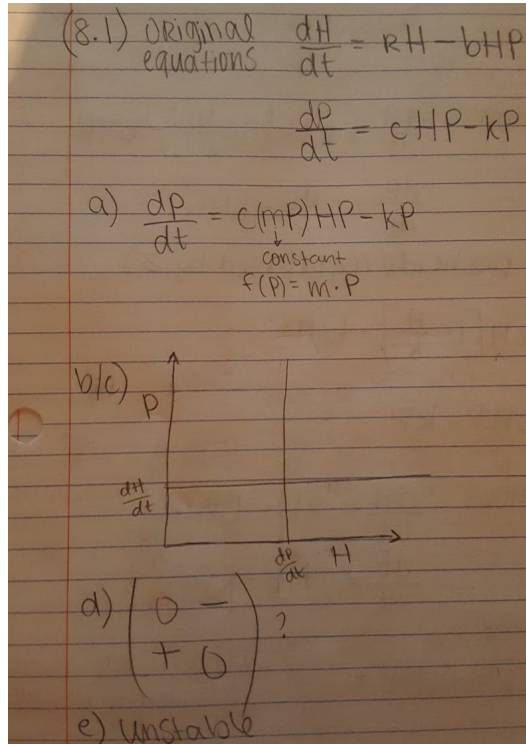 (8.1) Original equations dH/dt = RH - bHP
dP/dt = cHP - kP
a) dP/dt = c(mP)HP - kP
↓
constant
f(P) = m · P
b/c) P
dH/dt
dP/dt H
d) ( 0 - ) ?
( + 0 )
e) unstable